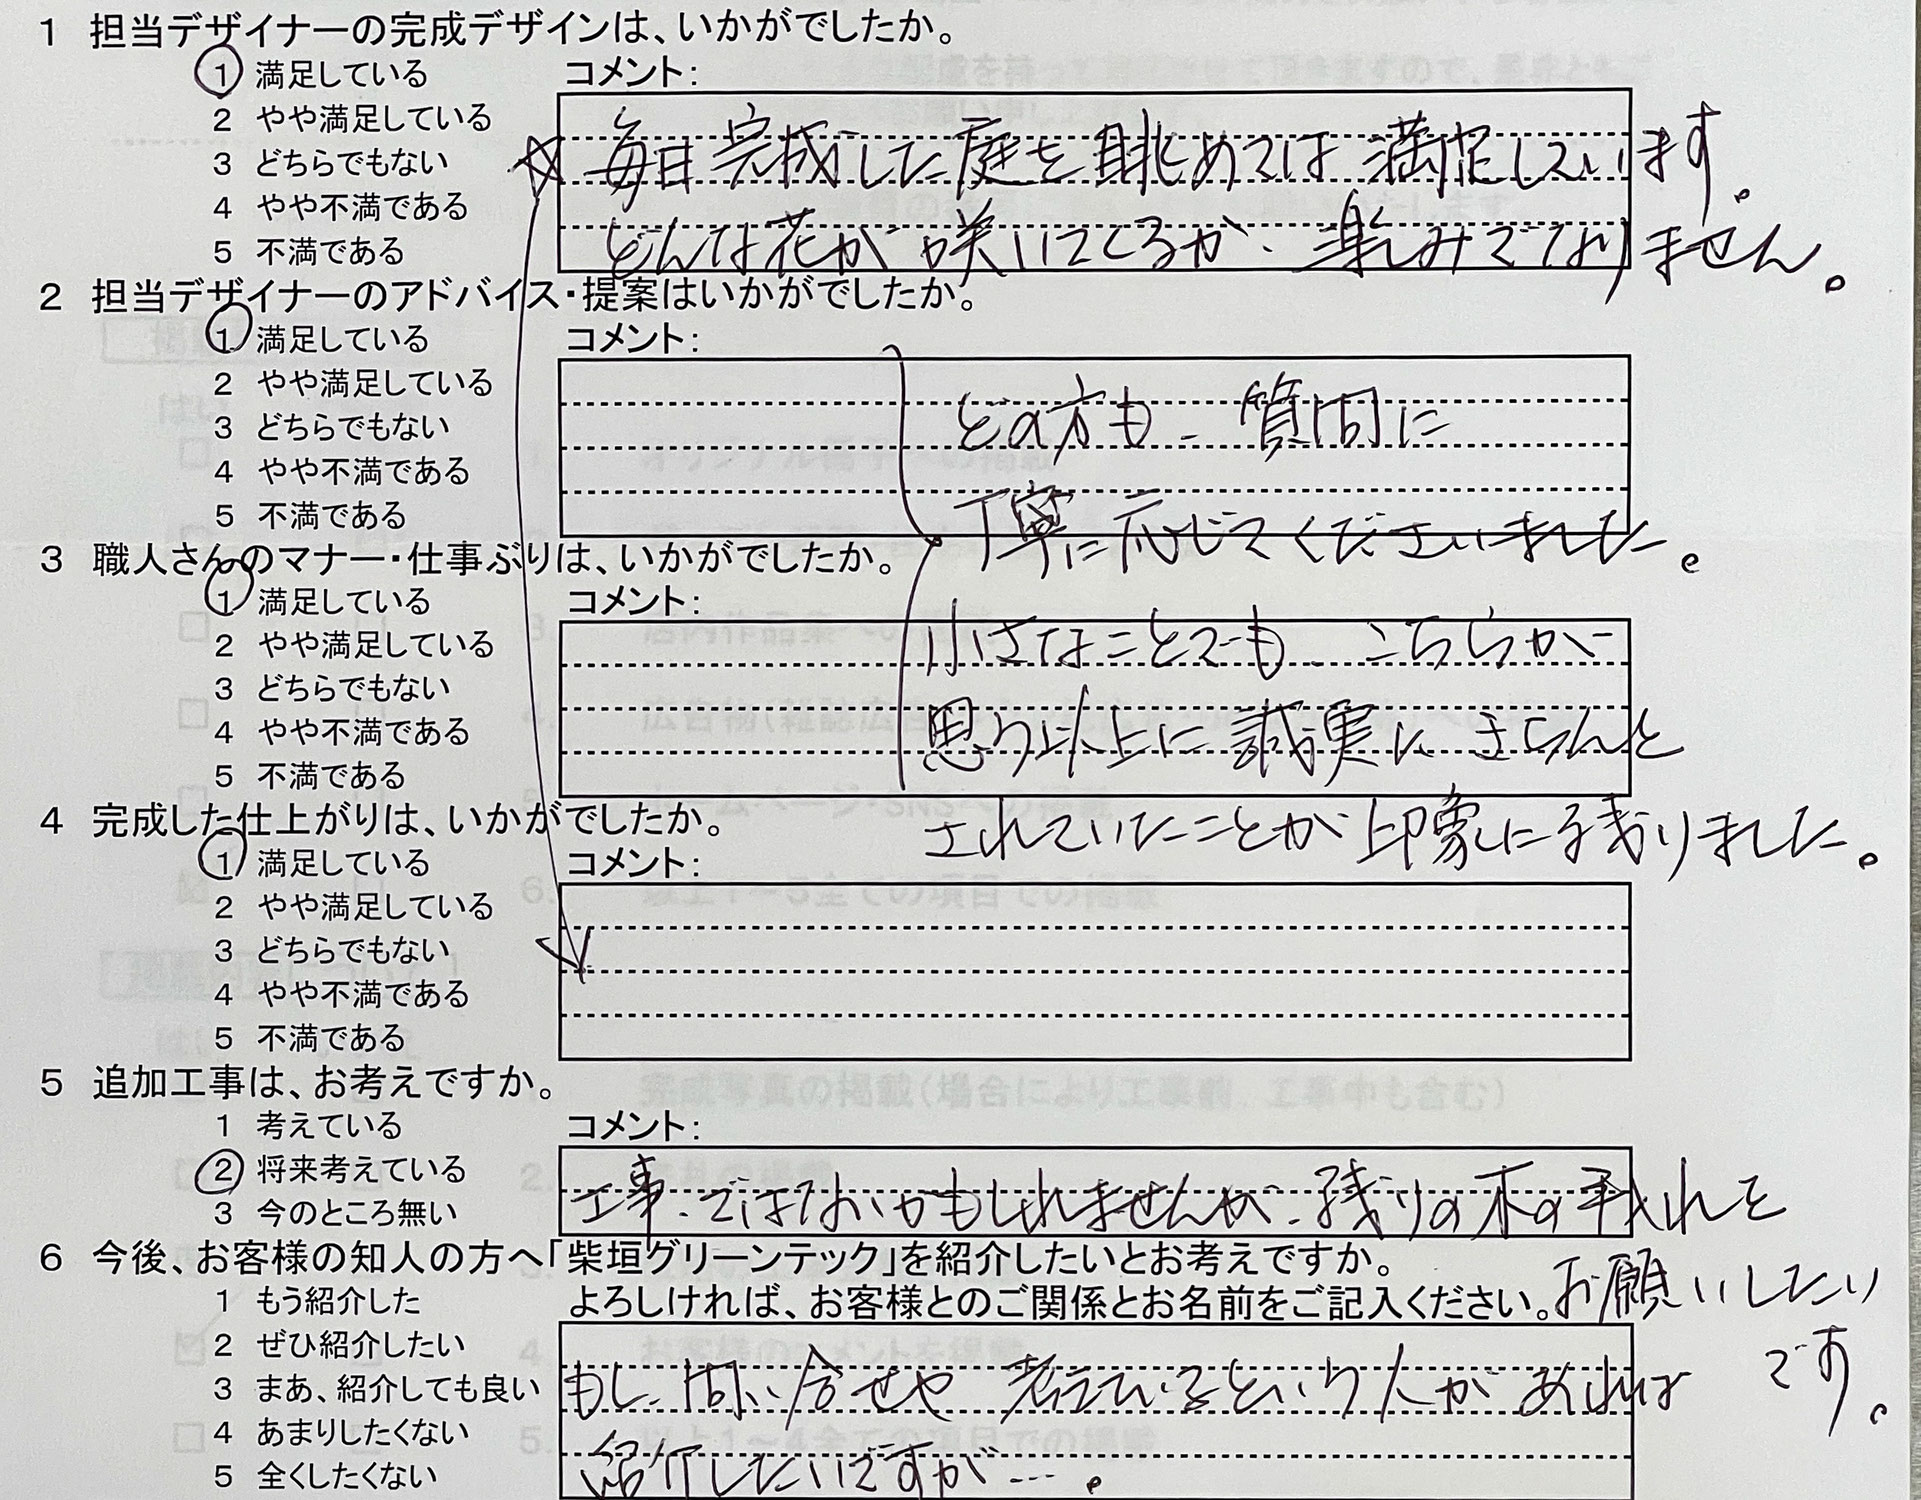 1 担当デザイナーの完成デザインは、いかがでしたか。
1 満足している
2 やや満足している
3 どちらでもない
4 やや不満である
5 不満である
コメント：
毎日完成した庭を眺めては満足しています。
どんな花が咲いてくるか、楽しみでなりません。
2 担当デザイナーのアドバイス・提案はいかがでしたか。
1 満足している
2 やや満足している
3 どちらでもない
4 やや不満である
5 不満である
コメント：
どの方も、質問に
丁寧に応じてくださいました。
3 職人さんのマナー・仕事ぶりは、いかがでしたか。
1 満足している
2 やや満足している
3 どちらでもない
4 やや不満である
5 不満である
コメント：
小さなことでも、こちらが
思う以上に誠実にきちんと
されていたことが印象に残りました。
4 完成した仕上がりは、いかがでしたか。
1 満足している
2 やや満足している
3 どちらでもない
4 やや不満である
5 不満である
コメント：
5 追加工事は、お考えですか。
1 考えている
2 将来考えている
3 今のところ無い
コメント：
工事、ではないかもしれませんが、残りの木の手入れを
お願いしたい
です。
6 今後、お客様の知人の方へ「柴垣グリーンテック」を紹介したいとお考えですか。
1 もう紹介した
2 ぜひ紹介したい
3 まあ、紹介しても良い
4 あまりしたくない
5 全くしたくない
よろしければ、お客様とのご関係とお名前をご記入ください。
もし、問い合せや考えているという人があれば
紹介したいですが…。